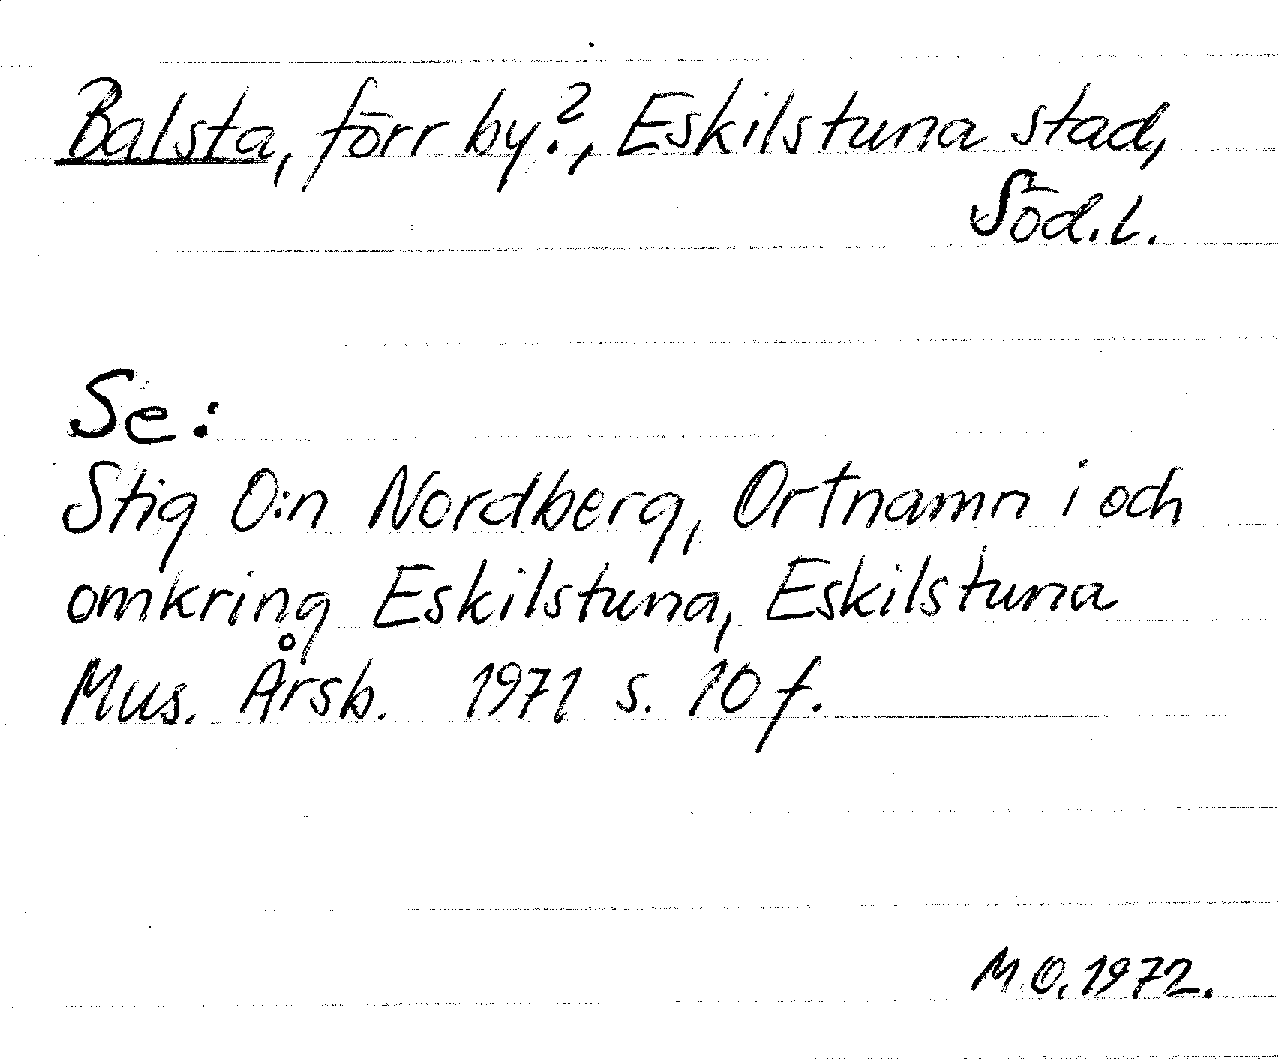 Balsta, förr by?, Eskilstuna stad,
Söd.l.
Se:
Stig O:n Nordberg, Ortnamn i och
omkring Eskilstuna, Eskilstuna
Mus. Årsb. 1971 s. 10 f.
M O. 1972.